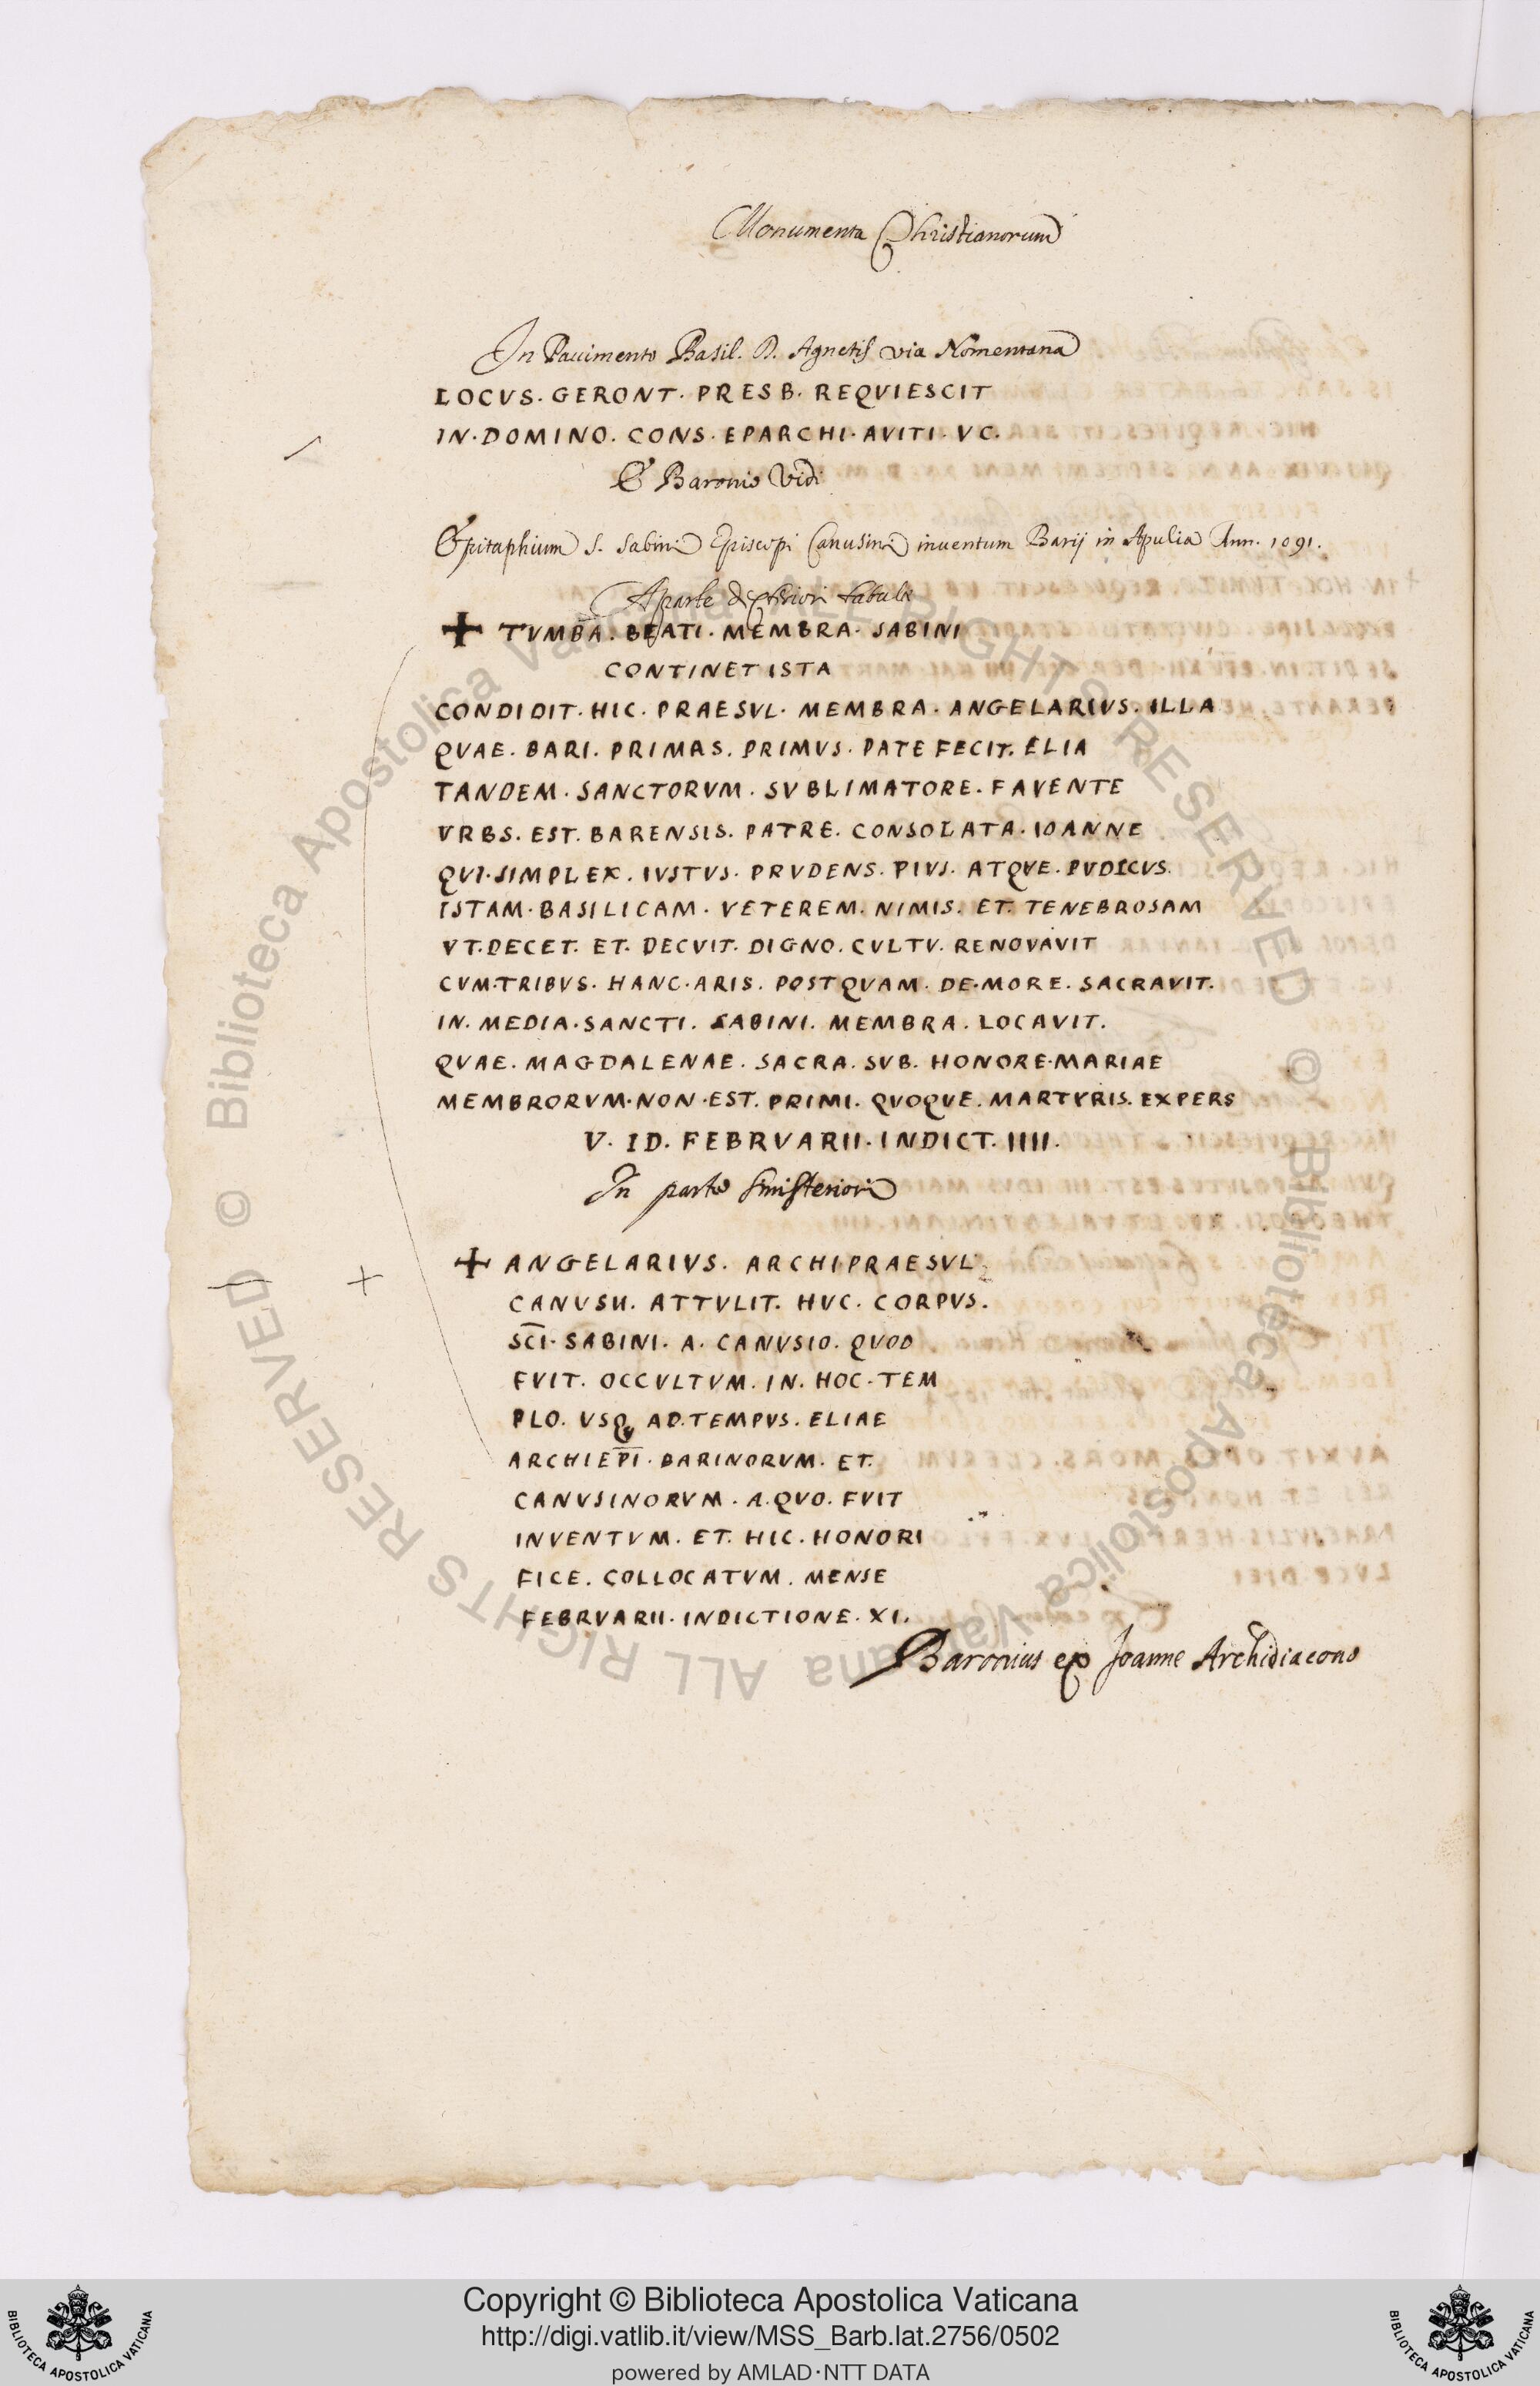 Monumenta Christianorum
In Pavimento Basil. D. Agnetis via Nomentana
LOCVS. GERONT. PRESB. REQVIESCIT
IN. DOMINO. CONS. EPARCHI. AVITI. VC.
E Baronio Vidi
Epitaphium S. Sabini Episcopi Canusini inventum Barij in Apulia Ann. 1091.
A parte dexteriori tabulę
+ TVMBA. BEATI. MEMBRA. SABINI
CONTINET ISTA
CONDIDIT. HIC. PRAESVL. MEMBRA. ANGELARIVS. ILLA
QVAE. BARI. PRIMAS. PRIMVS. PATEFECIT. ELIA
TANDEM. SANCTORVM. SVBLIMATORE. FAVENTE
VRBS. EST. BARENSIS. PATRE. CONSOLATA. IOANNE
QVI. SIMPLEX. IVSTVS. PRVDENS. PIVS. ATQVE. PVDICVS.
ISTAM. BASILICAM. VETEREM. NIMIS. ET. TENEBROSAM
VT. DECET. ET. DECVIT. DIGNO. CVLTV. RENOVAVIT
CVM. TRIBVS. HANC. ARIS. POSTQVAM. DE. MORE. SACRAVIT.
IN. MEDIA. SANCTI. SABINI. MEMBRA. LOCAVIT.
QVAE. MAGDALENAE. SACRA. SVB. HONORE. MARIAE
MEMBRORVM. NON. EST. PRIMI. QVOQVE. MARTYRIS. EXPERS
V. ID. FEBRVARII. INDICT. IIII.
In parte sinisteriori
+ ANGELARIVS. ARCHIPRAESVL
CANVSII. ATTVLIT. HVC. CORPVS.
SC̅I. SABINI. A. CANVSIO. QVOD
FVIT. OCCVLTVM. IN. HOC. TEM
PLO. VSQ; AD. TEMPVS. ELIAE
ARCHIEP̅I. BARINORVM. ET.
CANVSINORVM. A. QVO. FVIT
INVENTVM. ET. HIC. HONORI
FICE. COLLOCATVM. MENSE
FEBRVARII. INDICTIONE. XI.
Baronius ex Joanne Archidiacono
© Biblioteca Apostolica Vaticana ALL RIGHTS RESERVED © Biblioteca Apostolica Vaticana ALL RIGHTS RESERVED
Copyright © Biblioteca Apostolica Vaticana
http://digi.vatlib.it/view/MSS_Barb.lat.2756/0502
powered by AMLAD·NTT DATA
BIBLIOTECA APOSTOLICA VATICANA
BIBLIOTECA APOSTOLICA VATICANA